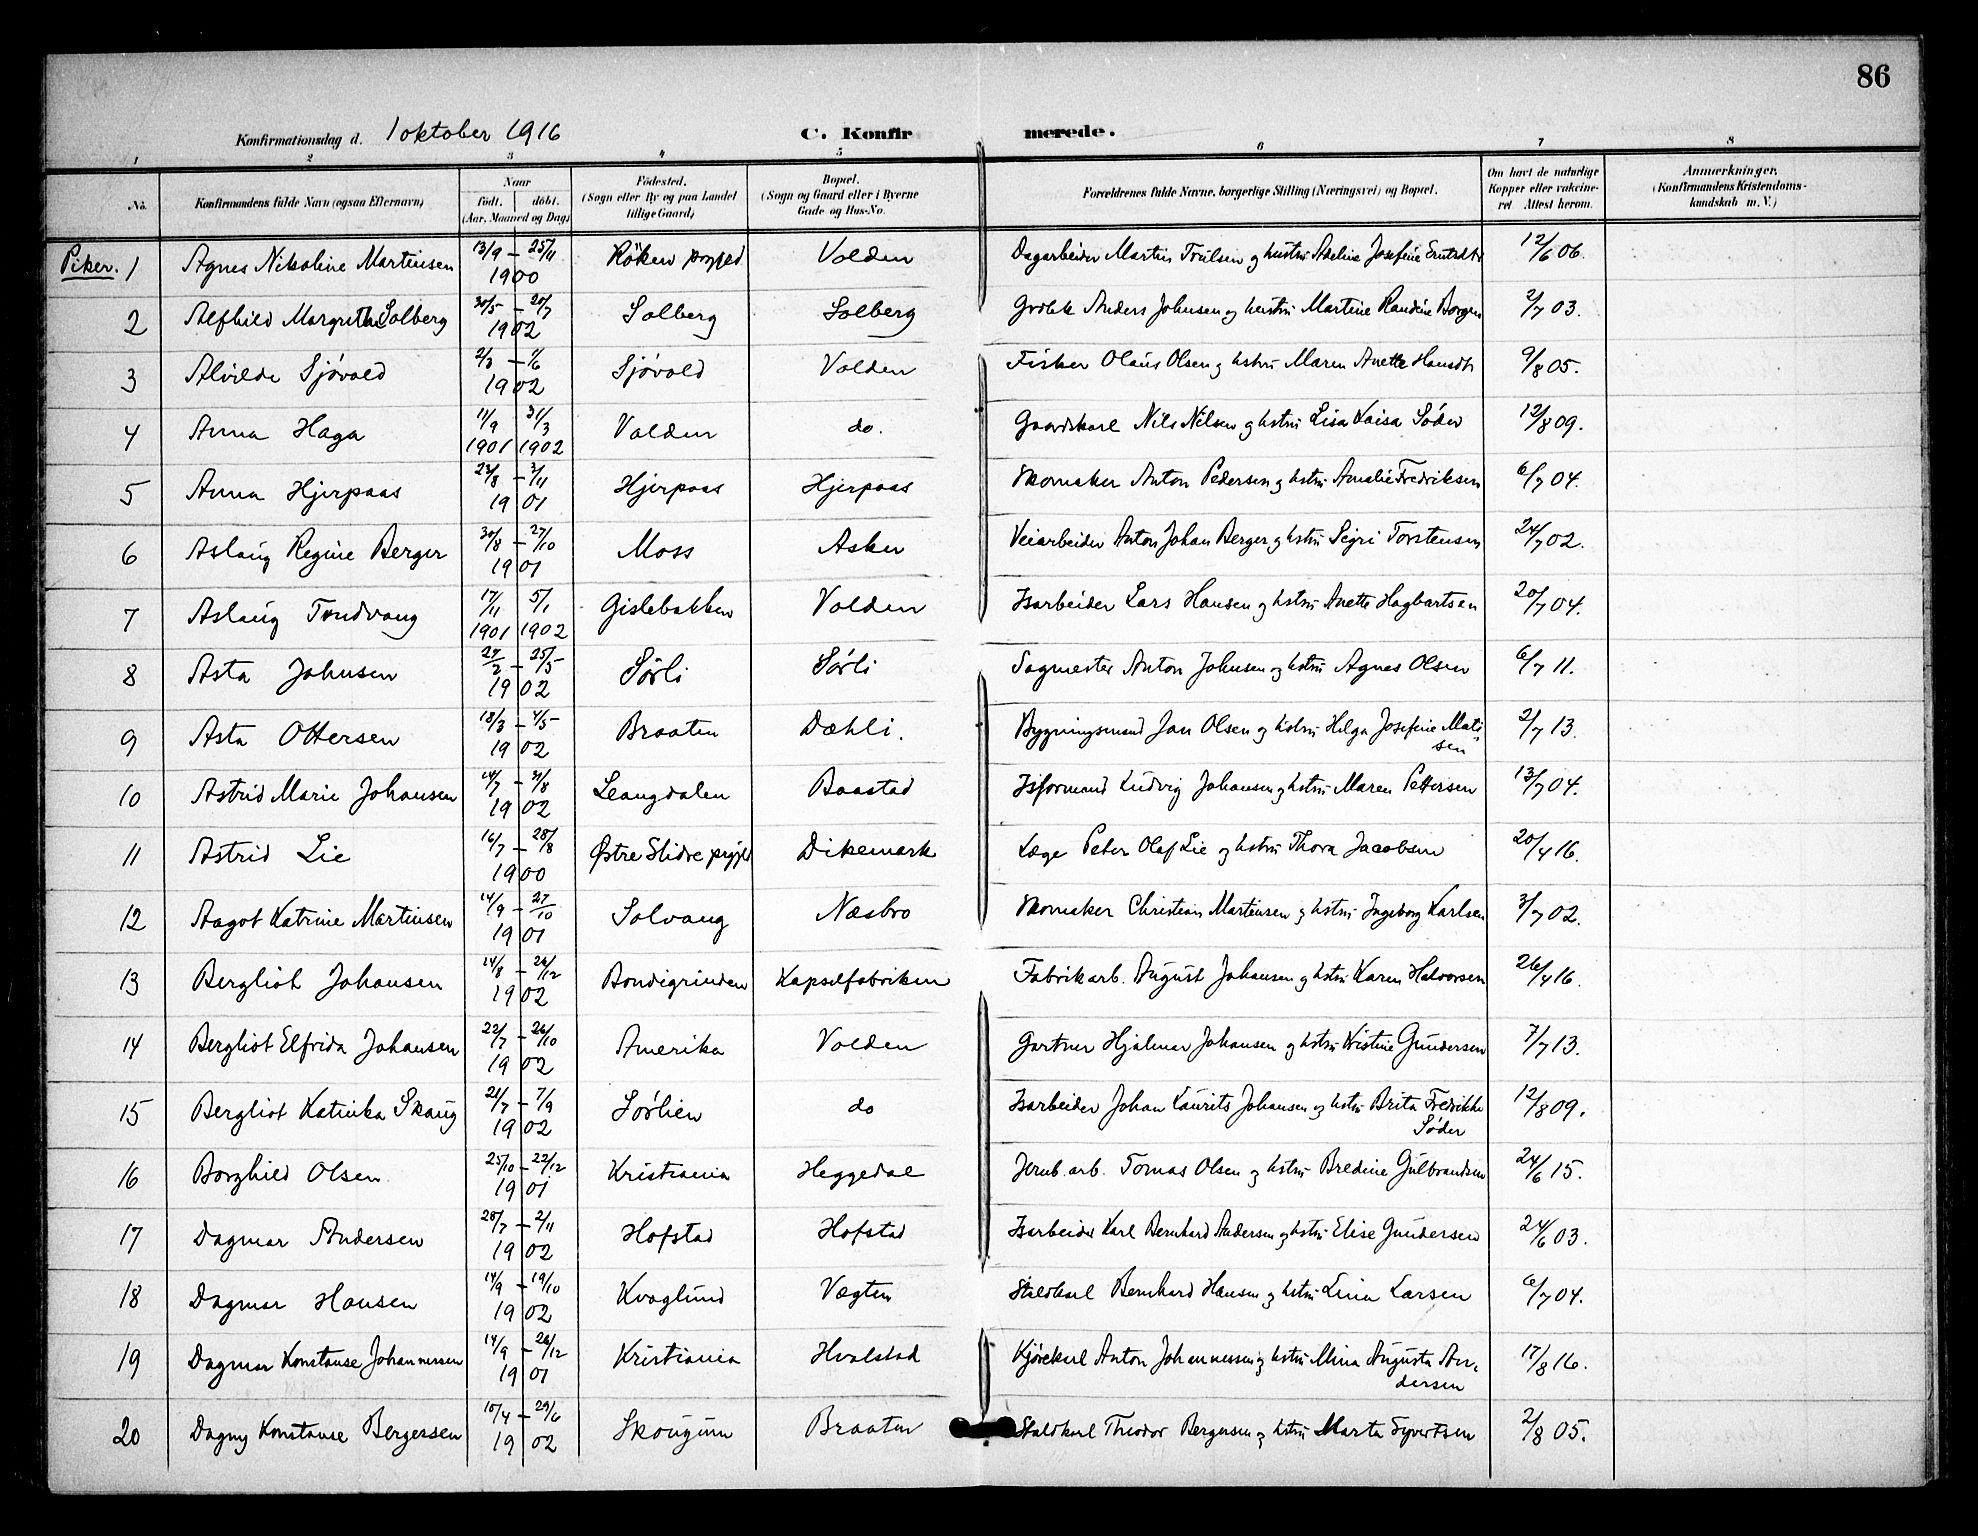 86
Konfirmationsdag d. 1 oktober 1916 C. Konfirmerede.
1 2 3 4 5 6 7 8
No. Konfirmandens fulde Navn (ogsaa Efternavn) Naar født. døbt. (Aar, Maaned og Dag) Fødested. (Sogn eller By og paa Landet tillige Gaard) Bopæl. (Sogn og Gaard eller i Byerne Gade og Hus-No. Forældrenes fulde Navne, borgerlige Stilling (Næringsvei) og Bopæl. Om havt de naturlige Kopper eller vakcineret. Attest herom. Anmærkninger. (Konfirmandens Kristendomskundskab m. V.)
Piker. 1 Agnes Nikoline Martinsen 13/9 – 25/11 1900 Röken prgjld Valden Dagarbeider Martin Truilsen og hustru Adeline Josefine 12/6 06.
2 Alfhild Margrethe Solberg 30/5 – 20/7 1902 Solberg Solberg Anders Johnsen og hustru Martine Randine Borgen 2/7 03.
3 Alvilde Sjövold 2/3 – 1/6 1902 Sjövold Valden Fisker Olaus Olsen og hstru Maren Anette Hansdtr 9/8 05.
4 Anna Haga 11/9 1901 31/3 1902 Valden do. Gaardskarl Nils Nilsen og hstru Lisa Kaisa Söder 12/8 09.
5 Anna Hjerpaas 23/8 – 3/11 1901 Hjerpaas Hjerpaas Skomaker Anton Pedersen og hstru Amalie Fredriksen 6/7 04.
6 Aslaug Regine Berger 30/8 – 27/10 1901 Moss Asker Veiarbeider Anton Johan Berger og hstru Sigri Torstensen 24/7 02.
7 Aslaug Tundvang 17/11 1901 5/1 1902 Gislebakken Valden Isarbeider Lars Hansen og hstru Anette Hagbartsen 20/7 04.
8 Asta Johnsen 27/2 – 25/5 1902 Sörli Sörli Sagmester Anton Johnsen og hstru Agnes Olsen 6/7 11.
9 Asta Ottersen 18/3 – 4/5 1902 Braaten Dæhli. Bygningsmand Jan Olsen og hstru Helga Josefine Mati-
sen 2/7 13.
10 Astrid Marie Johansen 14/7 – 31/8 1902 Leangdalen Baastad Isformand Ludvig Johansen og hstru Maren Pettersen 13/7 04.
11 Astrid Lie 16/7 – 28/8 1900 Østre Slidre prgjld Dikemark Læge Peter Olaf Lie og hstru Thora Jacobsen 20/4 16.
12 Aagot Katrine Martinsen 14/9 – 27/10 1901 Solvang Næsbro Skomaker Christian Martinsen og hstru Ingeborg Karlsen 3/7 02.
13 Bergliot Johansen 14/8 – 26/12 1902 Bondigrinden Kapselfabriken Fabrikarb. August Johansen og hstru Karen Halvorsen 26/4 16.
14 Bergliot Elfrida Johansen 22/7 – 26/10 1902 Amerika Valden Gartner Hjalmar Johansen og hstru Kristine Gundersen 7/7 13.
15 Bergliot Katinka Skaug 21/7 – 7/9 1902 Sörlien do Isarbeider Johan Laurits Johansen og hstru Brita Fredrikke
Söder 12/8 09.
16 Borghild Olsen 25/10 – 22/12 1901 Kristiania Heggedal Jernb. arb. Tomas Olsen og hstru Bredine Gulbrandsen 24/6 15.
17 Dagmar Andersen 28/7 – 2/11 1902 Hofstad Hofstad Isarbeider Karl Bernhard Andersen og hstru Elise Gundersen 24/6 03.
18 Dagmar Hansen 14/9 – 19/10 1902 Kvaglund Vægten Staldkarl Bernhard Hansen og hstru Lina Larsen 6/7 04.
19 Dagmar Konstanse Johannessen 14/9 – 26/12 1901 Kristiania Hvalstad Kjörekarl Anton Johannessen og hstru Mina Augusta An-
dersen 17/8 16.
20 Dagny Konstanse Bergersen 15/4 – 29/6 1902 Skougum Braaten Staldkarl Theodor Bergersen og hstru Marta Syvertsen 2/8 05.